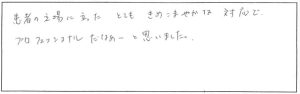 患者の立場に立った とても きめこまやかな 対応で
プロフェッショナル だなあーと思いました。